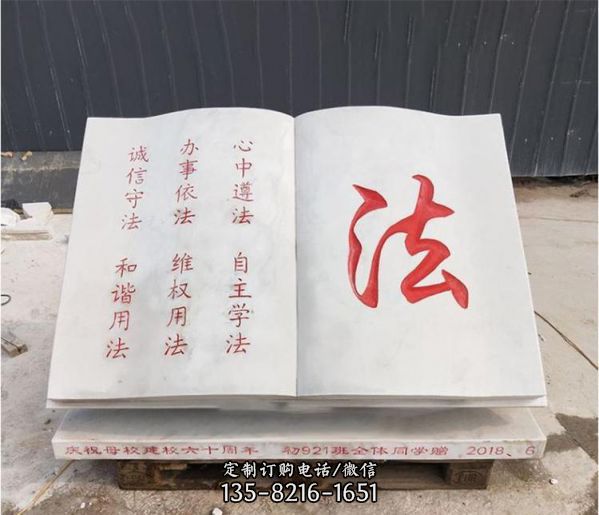 心中遵法 自主学法
办事依法 维权用法
诚信守法 和谐用法
法
庆祝母校建校六十周年 初921班全体同学赠 2018.6
定制订购电话/微信
135-8216-1651